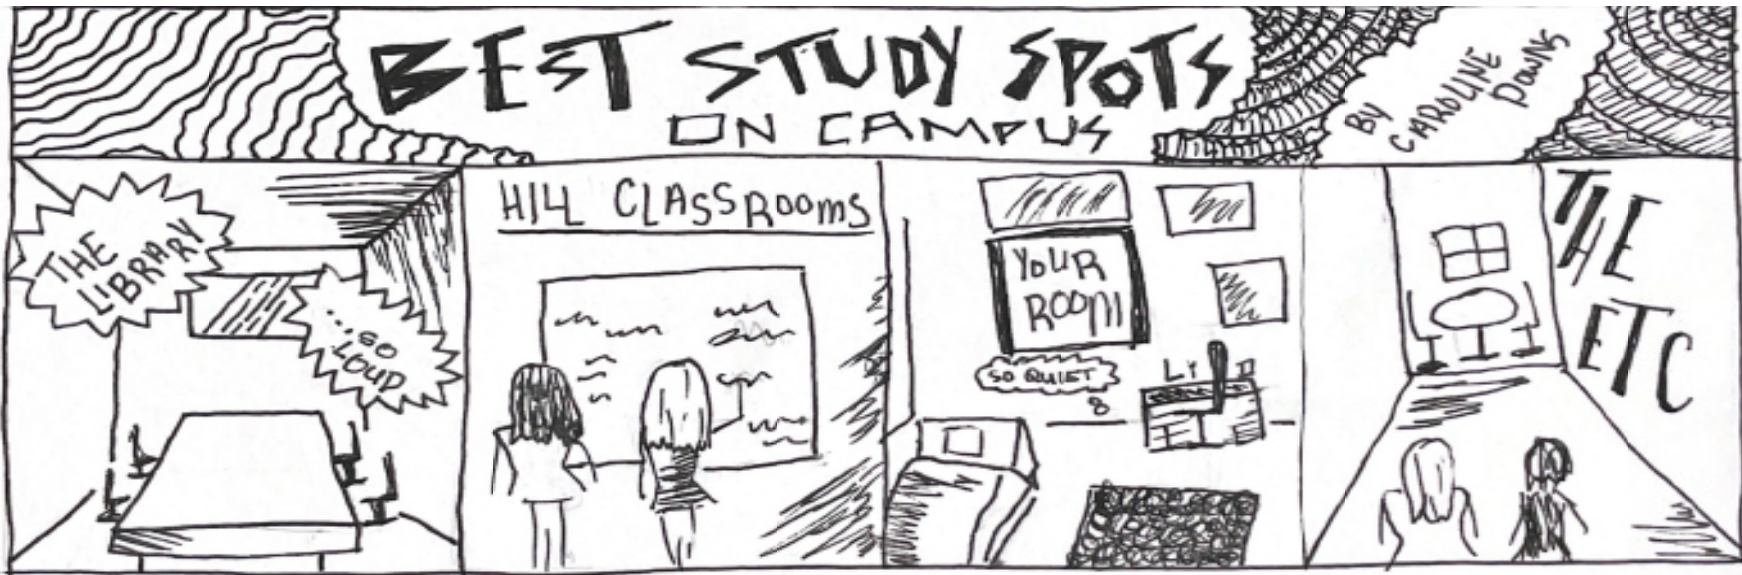 BEST STUDY SPOTS
ON CAMPUS
BY
CAROLINE
DOWNS
THE
LIBRARY
...SO
LOUD
HILL CLASSROOMS
YOUR
ROOM
SO QUIET
THE
ETC